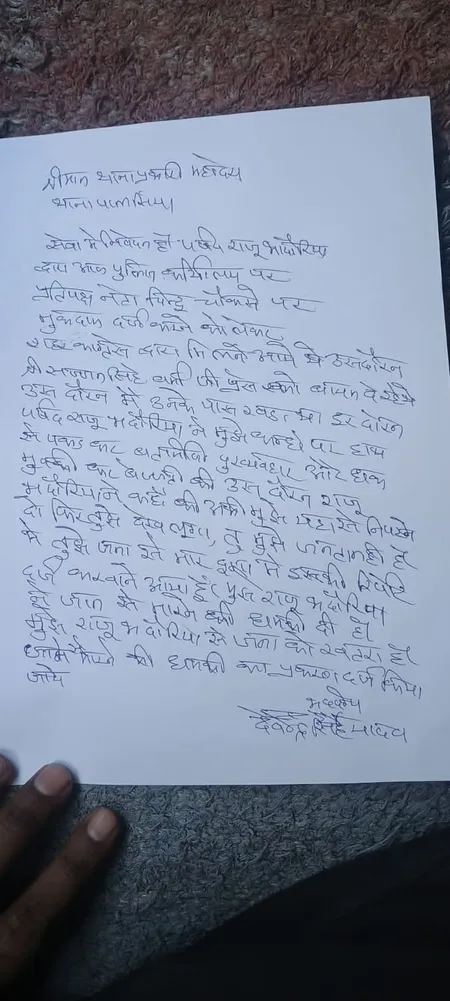 श्रीमान थाना प्रभारी महोदय
थाना पलासिया
सेवा मे निवेदन है पार्षद राजू भदौरिया
द्वारा आज पुलिस कार्यालय पर
प्रतिपक्ष नेता चिन्टू चौकसे पर
मुकदमा दर्ज करने को लेकर
शहर काग्रेस द्वारा मिलने आये थे उस दौरान
श्री सज्जन सिंह वर्मा जी प्रेस को बयान दे रहे थे
उस दौरान मे उनके पास खड़ा था इस दौरान
पार्षद राजू भदौरिया ने मुझे कन्धे पर हाथ
से पकड़ कर बतमिजि दुरव्यवहार और धक्का
मुक्की कर बेज्जती की उस दौरान राजू
भदौरिया ने कहा की अभी मुझे
दो फिर तुझे देख लूगा, तु मुझे जानता नही है
मे तुझे जान से मार दुगा मे इसकी रिपोर्ट
दर्ज करवाने आया हूँ। मुझे राजू भदौरिया
ने जान से मारने की धमकी दी है
मुझे राजू भदौरिया से जान का खतरा है
जान से मारने की धमकी का प्रकरण दर्ज किया
जाये
भवदीय
देवेन्द्र सिंह यादव